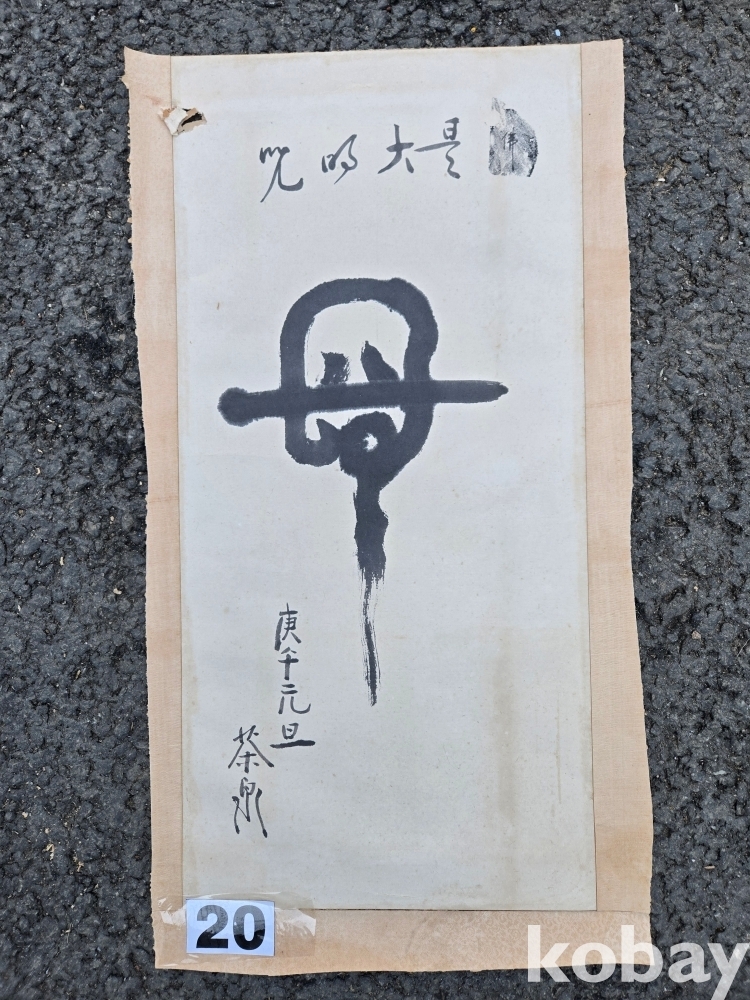 是大明呪
庚午元旦
茶泉
20
kobay